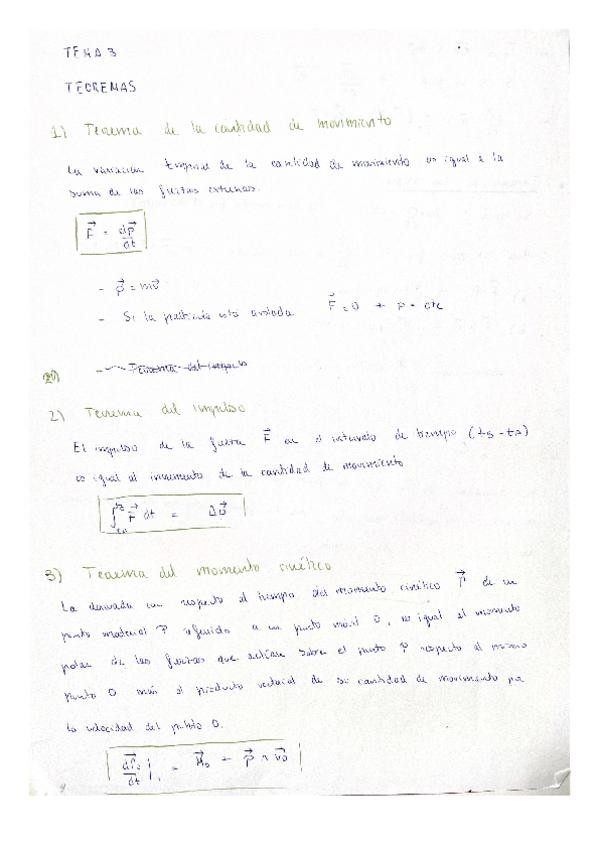 TEMA 3
TEOREMAS
1) Teorema de la cantidad de movimiento
La variación temporal de la cantidad de movimiento es igual a la
suma de las fuerzas externas.
F⃗ = dp⃗/dt
- p⃗ = mv⃗
- Si la partícula esta aislada F⃗ = 0 → p = cte
2)
- Teorema del impulso
2) Teorema del impulso
El impulso de la fuerza F⃗ en el intervalo de tiempo (tB - tA)
es igual al incremento de la cantidad de movimiento
∫ F⃗ dt =
3) Teorema del momento cinético
La derivada con respecto al tiempo del momento cinético de un
punto material P referido a un punto móvil O, es igual al momento
polar de las fuerzas que actúan sobre el punto P respecto al mismo
punto O más el producto vectorial de su cantidad de movimiento por
la velocidad del punto O.